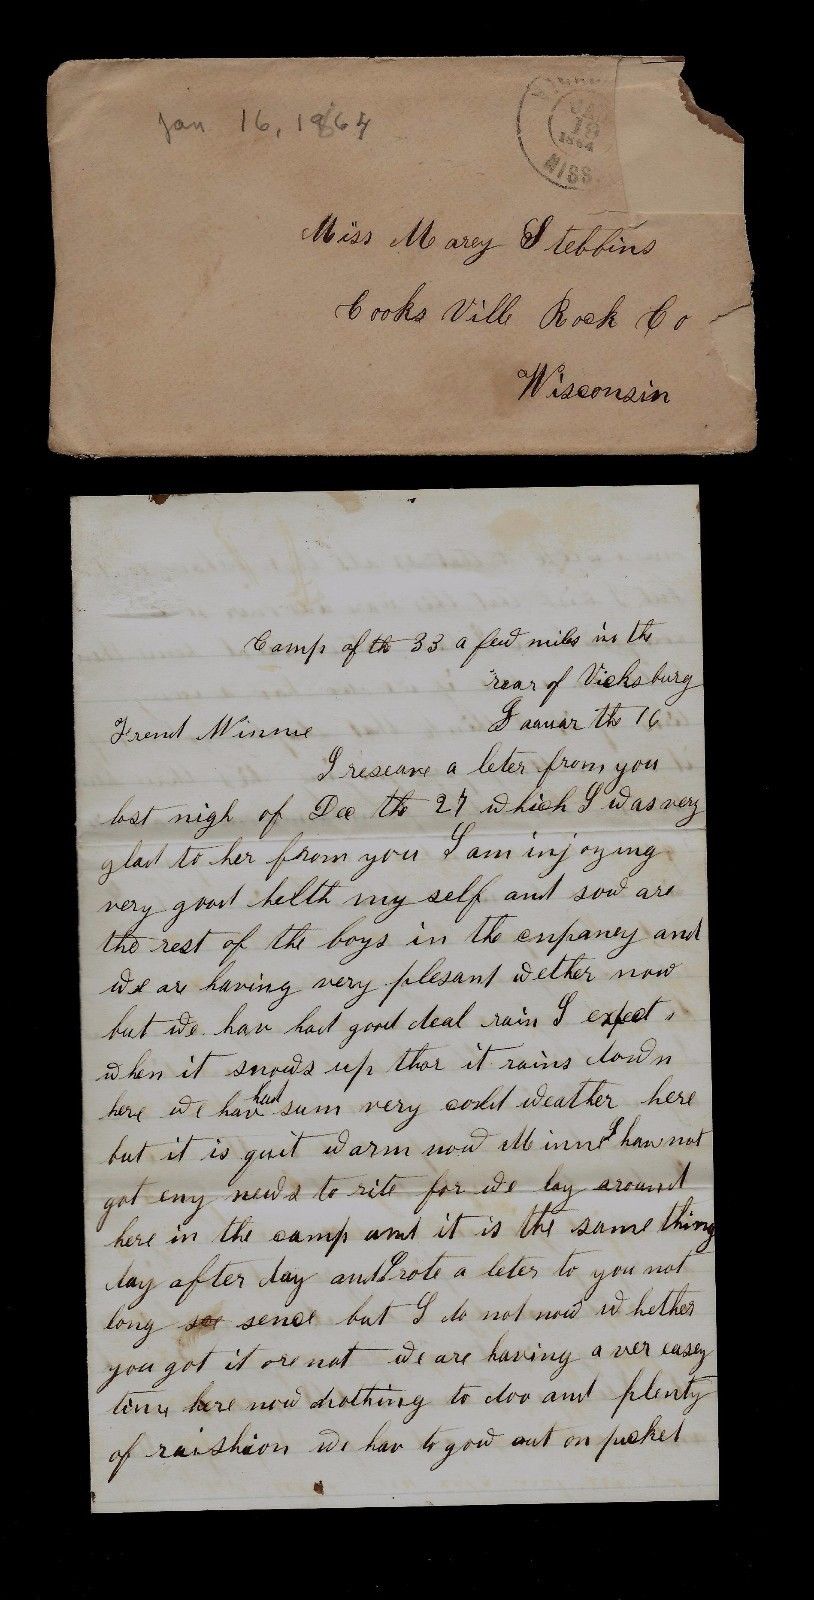 Jan 16, 1864
JAN
18
1864
MISS.
Miss Marey Stebbins
Cooks Ville Rock Co
Wisconsin
Camp of th 33 a few miles in the
rear of Vicksburg
Frend Minnie
Jaauar th 16
I reseave a leter from you
last nigh of Dec the 27 which I was very
glad to her from you I am injoying
very good helth my self and sow are
the rest of the boys in the cnpaney and
we are having very plesant wether now
but we hav had good deal rain I expect
when it snows up thar it rains down
here we hav had sum very cold weather here
but it is quit warm now Minne I hav not
got eny news to rite for we lay around
here in the camp and it is the same thing
day after day and I rote a leter to you not
long sence but I do not now whether
you got it ore not we are having a ver easey
time here now nothing to doo and plenty
of raishion we hav to gow out on picket